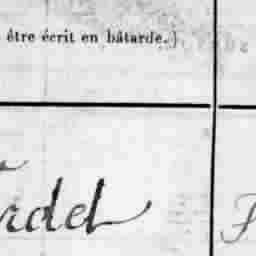 être écrit en bâtarde.)
rdel